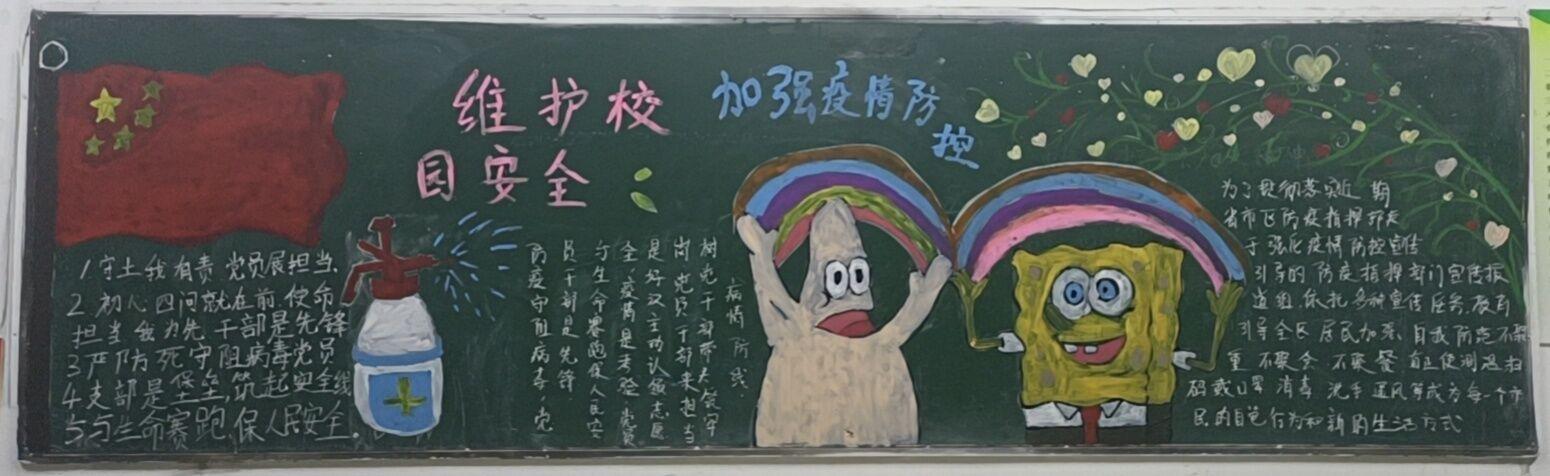 维护校
园安全
加强疫情防
控
1守土我有责 党员展担当
2.初心四问就在前.使命
担当我为先 干部是先锋
3严防死守阻病毒党员
4支部是堡垒,筑起安全线
5与生命赛跑,保人民安全.
病情防线
树先干部带头做守
岗党员干部来担当
是好汉主动认领志愿
全,疫情是考验,党员
与生命赛跑保人民安
员干部是先锋
防疫守阻病毒,党
为了贯彻落实近期
省市区防疫指挥部关
于强化疫情防控宣传
引导的防疫指挥部门宣传报
道组,依托多种宣传任务.教育
引导全区居民加强自我防范不聚
重 不聚会 不聚餐 自正使测温扫
码戴口罩 消毒 洗手 通风等成为每一个市
民的自觉行为和新的生活方式